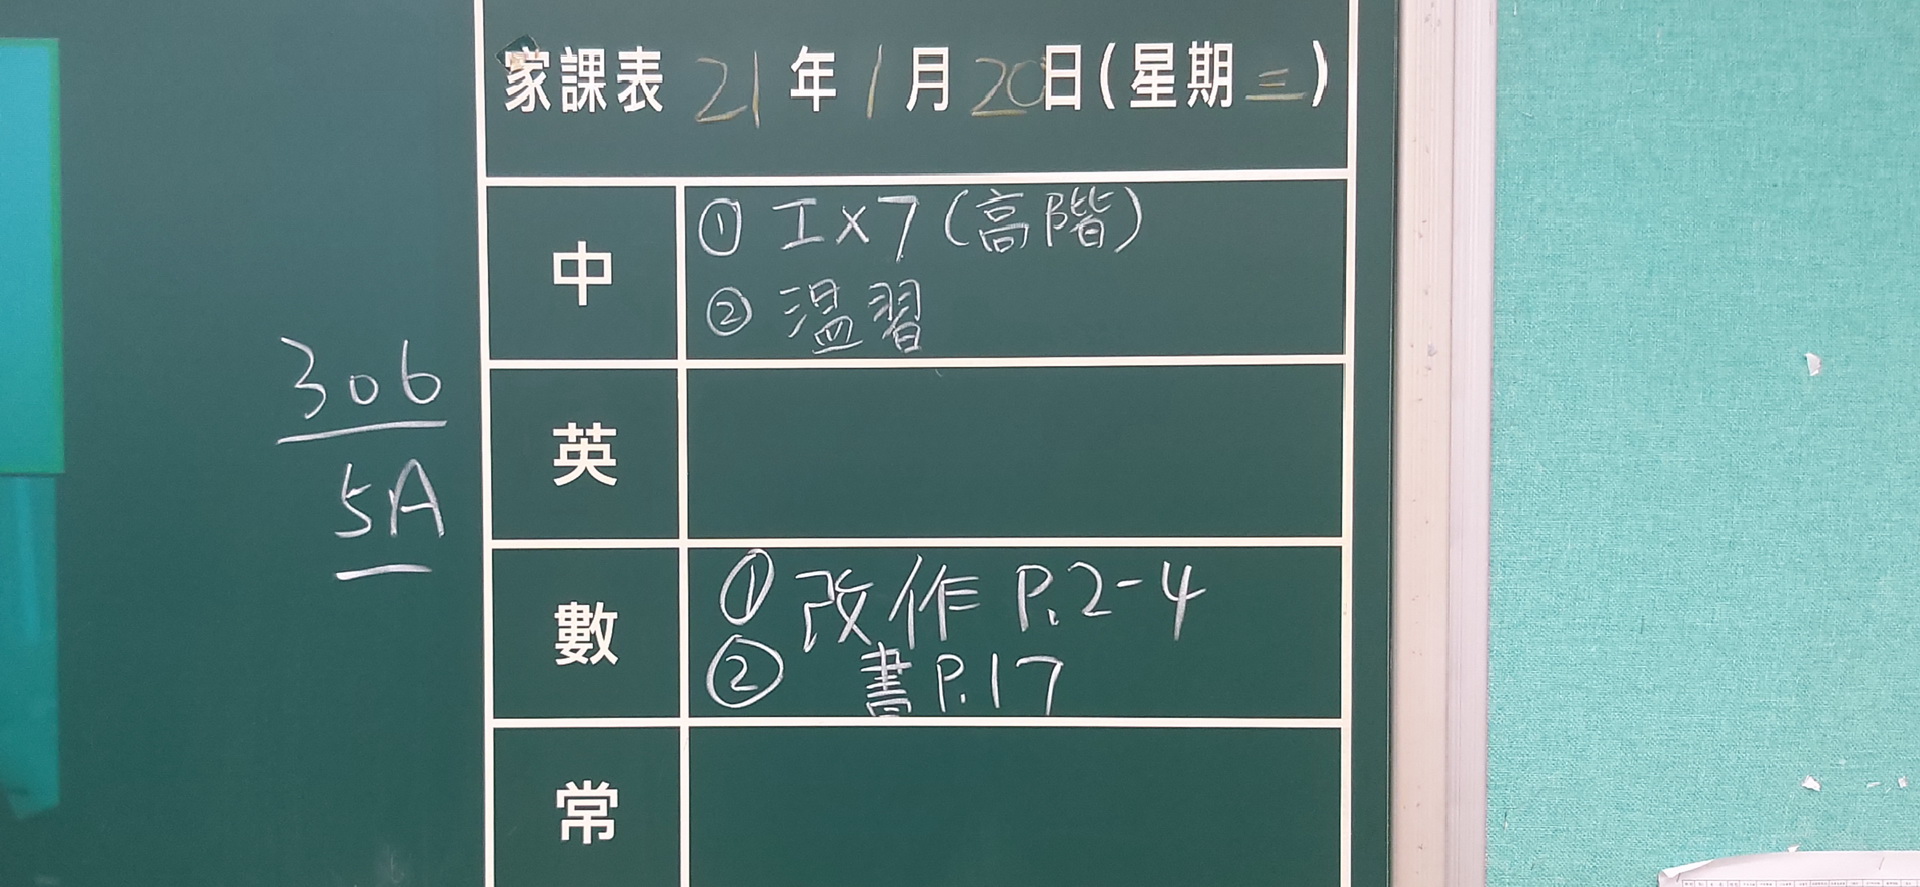 家課表 21年1月20日(星期三)
中
① 工x7(高階)
② 溫習
英
數
① 改作 P.2-4
② 書 P.17
常
306
5A